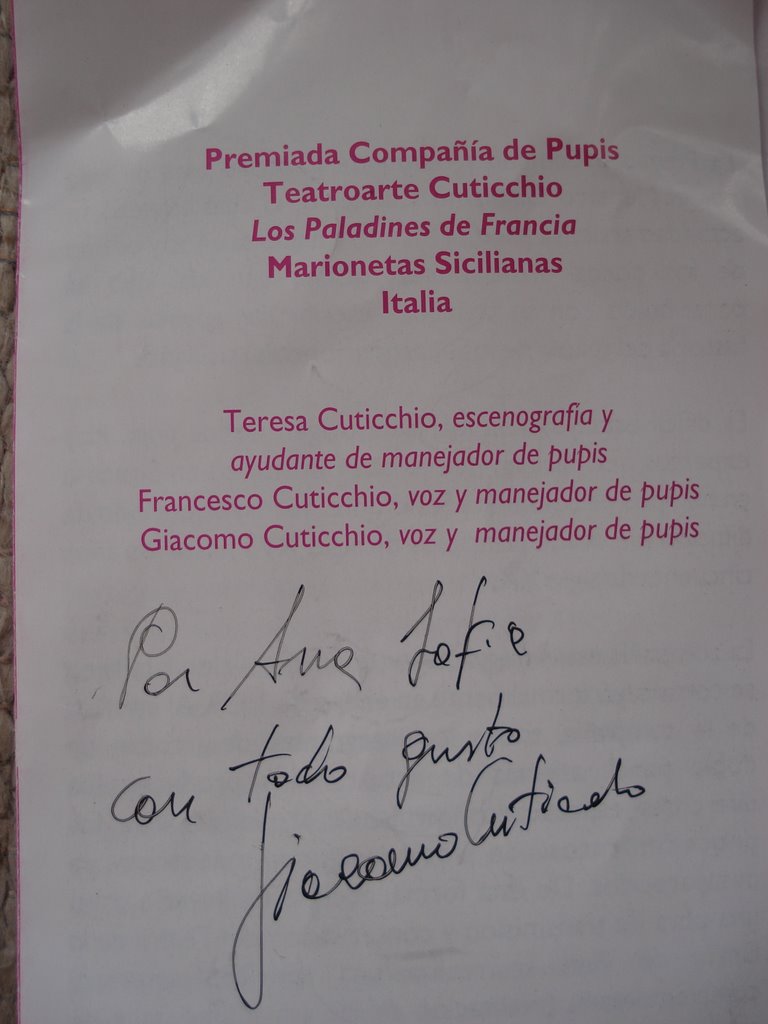 Premiada Compañía de Pupis
Teatroarte Cuticchio
Los Paladines de Francia
Marionetas Sicilianas
Italia
Teresa Cuticchio, escenografía y
ayudante de manejador de pupis
Francesco Cuticchio, voz y manejador de pupis
Giacomo Cuticchio, voz y manejador de pupis
Por Ana Sofie
con todo gusto
Giacomo Cuticchio